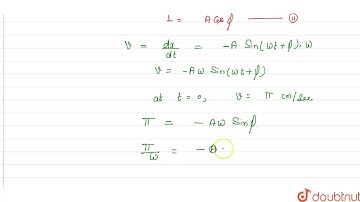 1 = A Cos φ ——— (ii)
V = dx/dt = -A Sin(ωt+φ).ω
V = -Aω Sin(ωt+φ)
at t=0, V = π cm/sec
π = - Aω Sin φ.
π/ω = - A
doubtnut